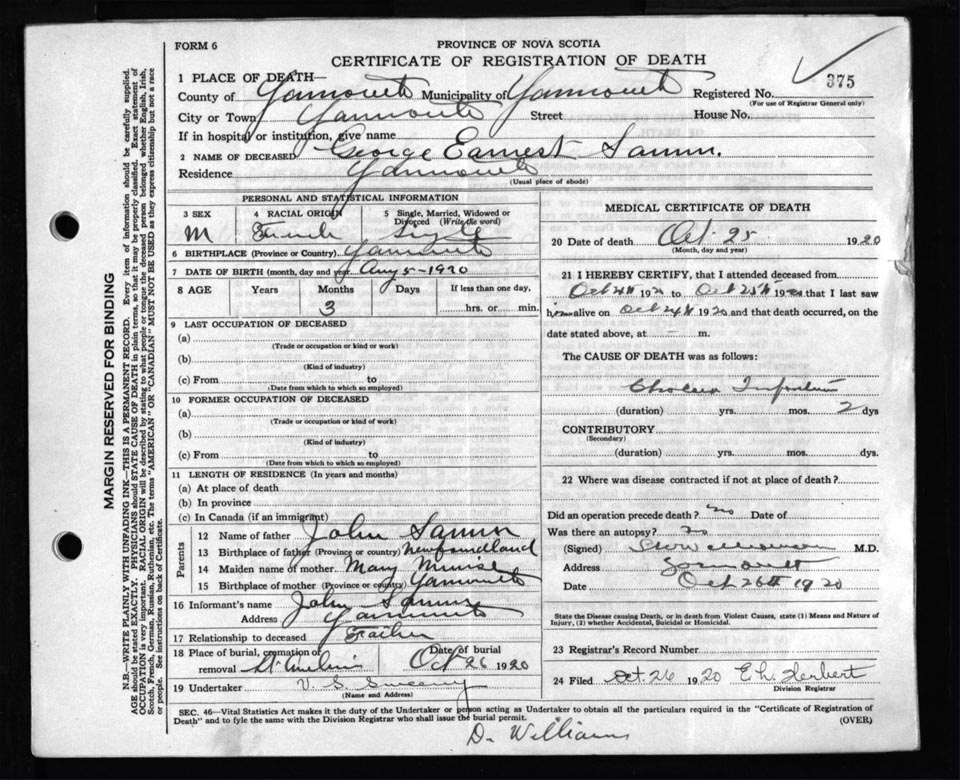 FORM 6
PROVINCE OF NOVA SCOTIA
CERTIFICATE OF REGISTRATION OF DEATH
375
1 PLACE OF DEATH—
County of Yarmouth Municipality of Yarmouth Registered No.
(For use of Registrar General only)
City or Town Yarmouth Street House No.
If in hospital or institution, give name
2 NAME OF DECEASED George Earnest
Residence Yarmouth
(Usual place of abode)
PERSONAL AND STATISTICAL INFORMATION
3 SEX
4 RACIAL ORIGIN
5 Single, Married, Widowed or Divorced (Write the word)
M French Single
6 BIRTHPLACE (Province or Country) Yarmouth
7 DATE OF BIRTH (month, day and year) Aug 5-1920
8 AGE Years Months Days If less than one day,
3 hrs. or min.
9 LAST OCCUPATION OF DECEASED
(a)
(Trade or occupation or kind or work)
(b)
(Kind of industry)
(c) From to
(Date from which to which so employed)
10 FORMER OCCUPATION OF DECEASED
(a)
(Trade or occupation or kind of work)
(b)
(Kind of industry)
(c) From to
(Date from which to which so employed)
11 LENGTH OF RESIDENCE (In years and months)
(a) At place of death
(b) In province
(c) In Canada (if an immigrant)
Parents
12 Name of father John
13 Birthplace of father (Province or country) Newfoundland
14 Maiden name of mother Mary
15 Birthplace of mother (Province or country) Yarmouth
16 Informant's name John
Address Yarmouth
17 Relationship to deceased Father
18 Place of burial, cremation or removal
Date of burial Oct 26 1920
19 Undertaker V. S. Sweeny
(Name and Address)
MEDICAL CERTIFICATE OF DEATH
20 Date of death Oct. 25 1920
(Month, day and year)
21 I HEREBY CERTIFY, that I attended deceased from
Oct 192 to Oct 25th 19 that I last saw
him alive on Oct 24th 1920 and that death occurred, on the
date stated above, at - m.
The CAUSE OF DEATH was as follows:
Cholera Infantum
(duration) yrs. mos. 2 dys
CONTRIBUTORY
(Secondary)
(duration) yrs. mos. dys.
22 Where was disease contracted if not at place of death?
Did an operation precede death? no Date of
Was there an autopsy? no
(Signed) M.D.
Address Yarmouth
Date Oct 26th 1920
State the Disease causing Death, or in death from Violent Causes, state (1) Means and Nature of Injury, (2) whether Accidental, Suicidal or Homicidal.
23 Registrar's Record Number
24 Filed Oct. 26 1920 E. H. Herbert
Division Registrar
SEC. 46—Vital Statistics Act makes it the duty of the Undertaker or person acting as Undertaker to obtain all the particulars required in the "Certificate of Registration of
Death" and to fyle the same with the Division Registrar who shall issue the burial permit. (OVER)
D. Williams
MARGIN RESERVED FOR BINDING
N.B.—WRITE PLAINLY WITH UNFADING INK—THIS IS A PERMANENT RECORD. Every item of information should be carefully supplied.
AGE should be stated EXACTLY. PHYSICIANS should STATE CAUSE OF DEATH in plain terms, so that it may be properly classified. Exact statement of
OCCUPATION is very important. RACIAL ORIGIN will be described by stating to what people or tongue the deceased person belonged whether English, Irish,
Scotch, French, German, Russian, Ruthenian, etc. The terms "AMERICAN" OR "CANADIAN" MUST NOT BE USED as they express citizenship but not a race
or people. See instructions on back of Certificate.